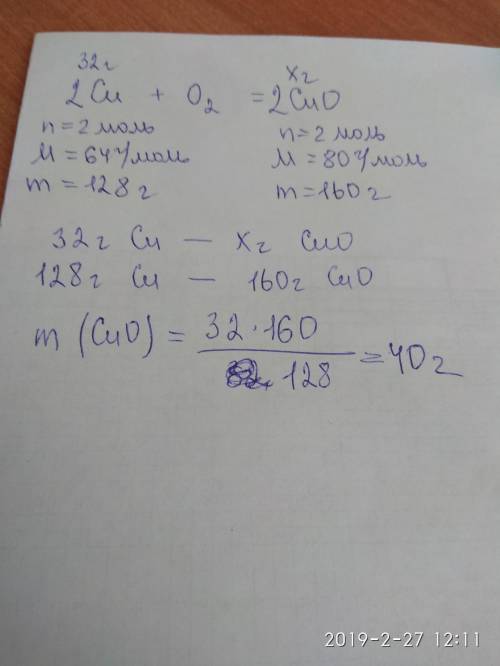 32г xг
2Cu + O2 = 2CuO
n = 2 моль n = 2 моль
M = 64 г/моль M = 80 г/моль
m = 128 г m = 160 г
32 г Cu — xг CuO
128 г Cu — 160 г CuO
m (CuO) = 32·160 / 128 = 40 г
2019-2-27 12:11